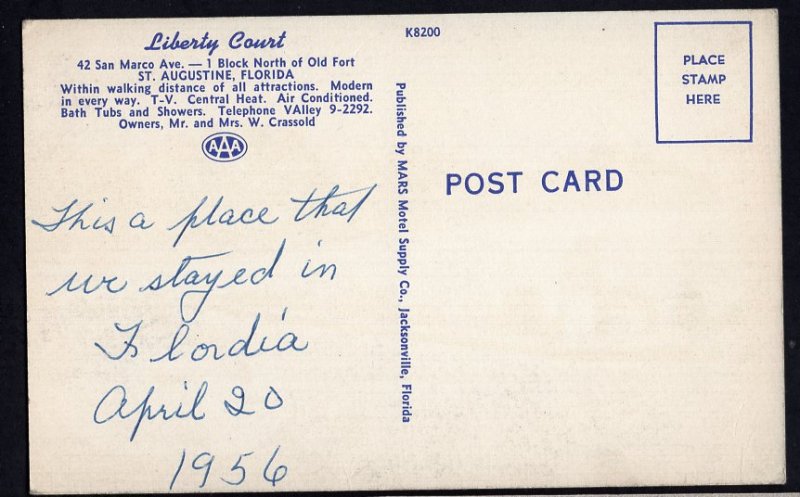 Liberty Court
42 San Marco Ave. — 1 Block North of Old Fort
ST. AUGUSTINE, FLORIDA
Within walking distance of all attractions. Modern
in every way. T-V. Central Heat. Air Conditioned.
Bath Tubs and Showers. Telephone VAlley 9-2292.
Owners, Mr. and Mrs. W. Crassold
AAA
This a place that
we stayed in
Flordia
April 20
1956
K8200
Published by MARS Motel Supply Co., Jacksonville, Florida
POST CARD
PLACE
STAMP
HERE